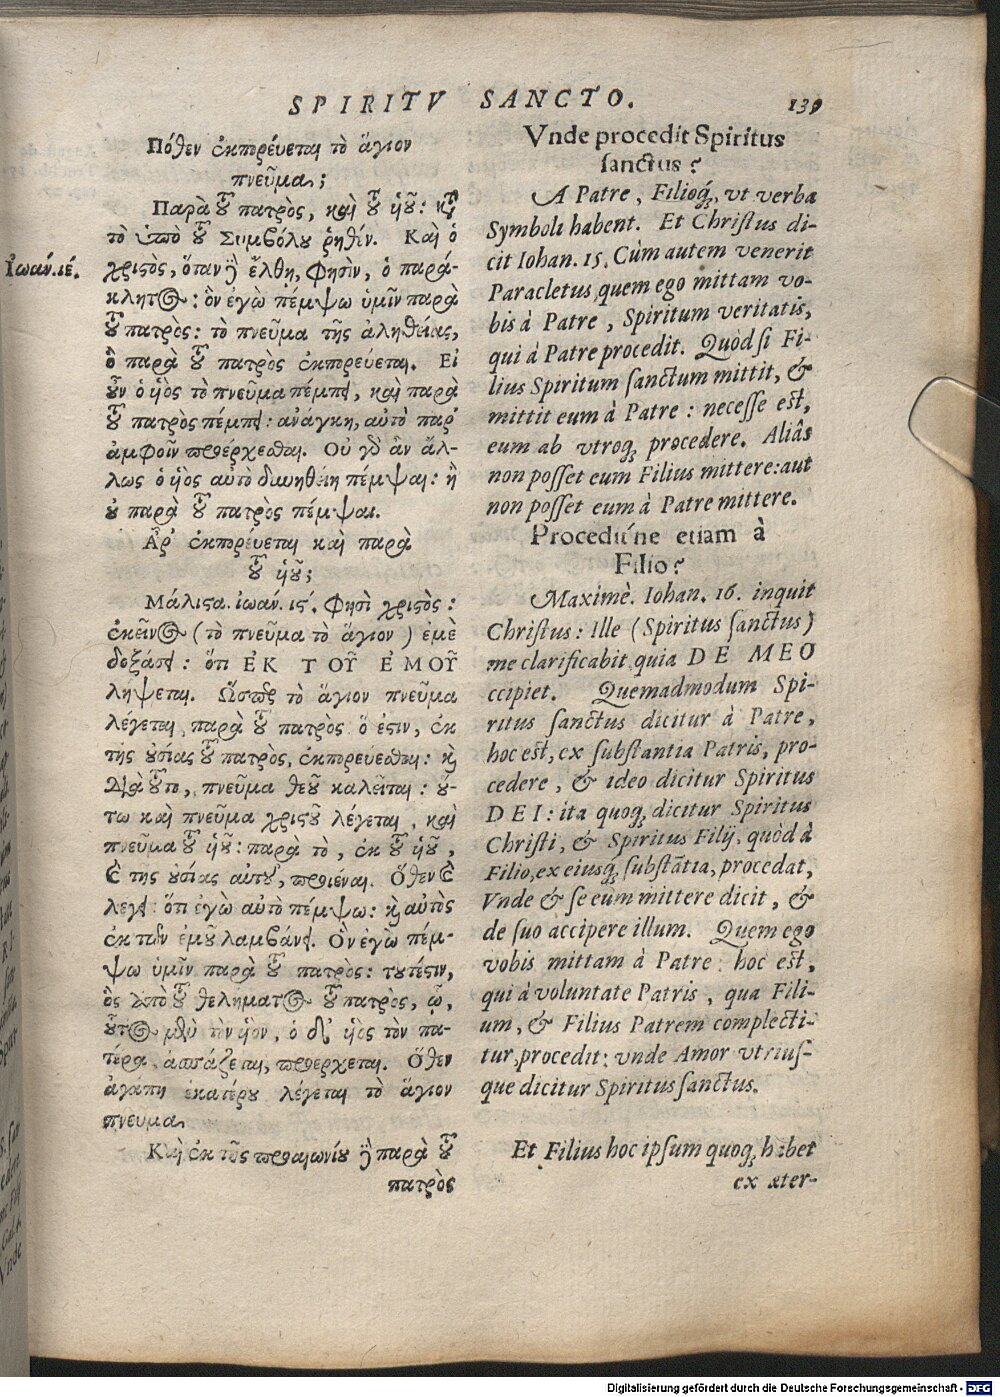 SPIRITV SANCTO. 139
Πόθεν ἐκπορεύεται τὸ ἅγιον
πνεῦμα;
Παρὰ τοῦ πατρὸς, καὶ τοῦ ἱοῦ: κατὰ
τὸ ὑπὸ τοῦ Συμβόλου ῥηθέν. Καὶ ὁ
Ἰωάν. ιέ.
χριστὸς, ὅταν δὲ ἔλθῃ, φησὶν, ὁ παρά-
κλητος: ὃν ἐγὼ πέμψω ὑμῖν παρὰ
τοῦ πατρὸς: τὸ πνεῦμα τῆς ἀληθείας,
ὃ παρὰ τοῦ πατρὸς ἐκπορεύεται. Εἰ
οὖν ὁ ἱὸς τὸ πνεῦμα πέμπει, καὶ παρὰ
τοῦ πατρὸς πέμπει: ἀνάγκη, αὐτὸ παρ'
ἀμφοῖν προέρχεσθαι. Οὐ γὰρ ἂν ἄλ-
λως ὁ ἱὸς αὐτὸ δυνηθείη πέμψαι: ἢ
οὐ παρὰ τοῦ πατρὸς πέμψαι.
Ἆρ' ἐκπορεύεται καὶ παρὰ
τοῦ ἱοῦ;
Μάλιστα. ἰωάν. ιϛ'. φησὶ χριστὸς:
ἐκεῖνος (τὸ πνεῦμα τὸ ἅγιον) ἐμὲ
δοξάσει: ὅτι ἘΚ ΤΟΥ͂ ἘΜΟΥ͂
λήψεται. Ὥσπερ τὸ ἅγιον πνεῦμα
λέγεται, παρὰ τοῦ πατρὸς ὅ ἐστιν, ἐκ
τῆς οὐσίας τοῦ πατρὸς, ἐκπορεύεσθαι: καὶ
διὰ τοῦτο, πνεῦμα θεοῦ καλεῖται: οὕ-
τω καὶ πνεῦμα χριστοῦ λέγεται, καὶ
πνεῦμα τοῦ ἱοῦ: παρὰ τὸ, ἐκ τοῦ ἱοῦ,
καὶ τῆς οὐσίας αὐτοῦ, προϊέναι. Ὅθεν καὶ
λέγει: ὅτι ἐγὼ αὐτὸ πέμψω: καὶ αὐτὸς
ἐκ τῶν ἐμοῦ λαμβάνει. Ὃν ἐγὼ πέμ-
ψω ὑμῖν παρὰ τοῦ πατρὸς: τουτέστιν,
ὃς ἀπὸ τοῦ θελήματος τοῦ πατρὸς, ᾧ,
οὗτος μὲν τὸν ἱὸν, ὁ δ' ἱὸς τὸν πα-
τέρα, ἀσπάζεται, προέρχεται. Ὅθεν
ἀγάπη ἑκατέρου λέγεται τὸ ἅγιον
πνεῦμα.
Καὶ ἐκ τοῦ προαιωνίου δὲ παρὰ τοῦ
πατρὸς
Vnde procedit Spiritus
sanctus?
A Patre, Filioq́;, vt verba
Symboli habent. Et Christus di-
cit Iohan. 15. Cùm autem venerit
Paracletus quem ego mittam vo-
bis à Patre, Spiritum veritatis,
qui à Patre procedit. Quòd si Fi-
lius Spiritum sanctum mittit, &
mittit eum à Patre: necesse est,
eum ab vtroq; procedere. Aliâs
non posset eum Filius mittere: aut
non posset eum à Patre mittere.
Procedítne etiam à
Filio?
Maximè. Iohan. 16. inquit
Christus: Ille (Spiritus sanctus)
me clarificabit, quia DE MEO
ccipiet. Quemadmodum Spi-
ritus sanctus dicitur à Patre,
hoc est, ex substantia Patris, pro-
cedere, & ideo dicitur Spiritus
DEI: ita quoq; dicitur Spiritus
Christi, & Spiritus Filij, quòd à
Filio, ex eiusq́; substãtia, procedat,
Vnde & se eum mittere dicit, &
de suo accipere illum. Quem ego
vobis mittam à Patre: hoc est,
qui à voluntate Patris, qua Fili-
um, & Filius Patrem complecti-
tur, procedit: vnde Amor vtrius-
que dicitur Spiritus sanctus.
Et Filius hoc ipsum quoq; habet
ex æter-
Digitalisierung gefördert durch die Deutsche Forschungsgemeinschaft - DFG